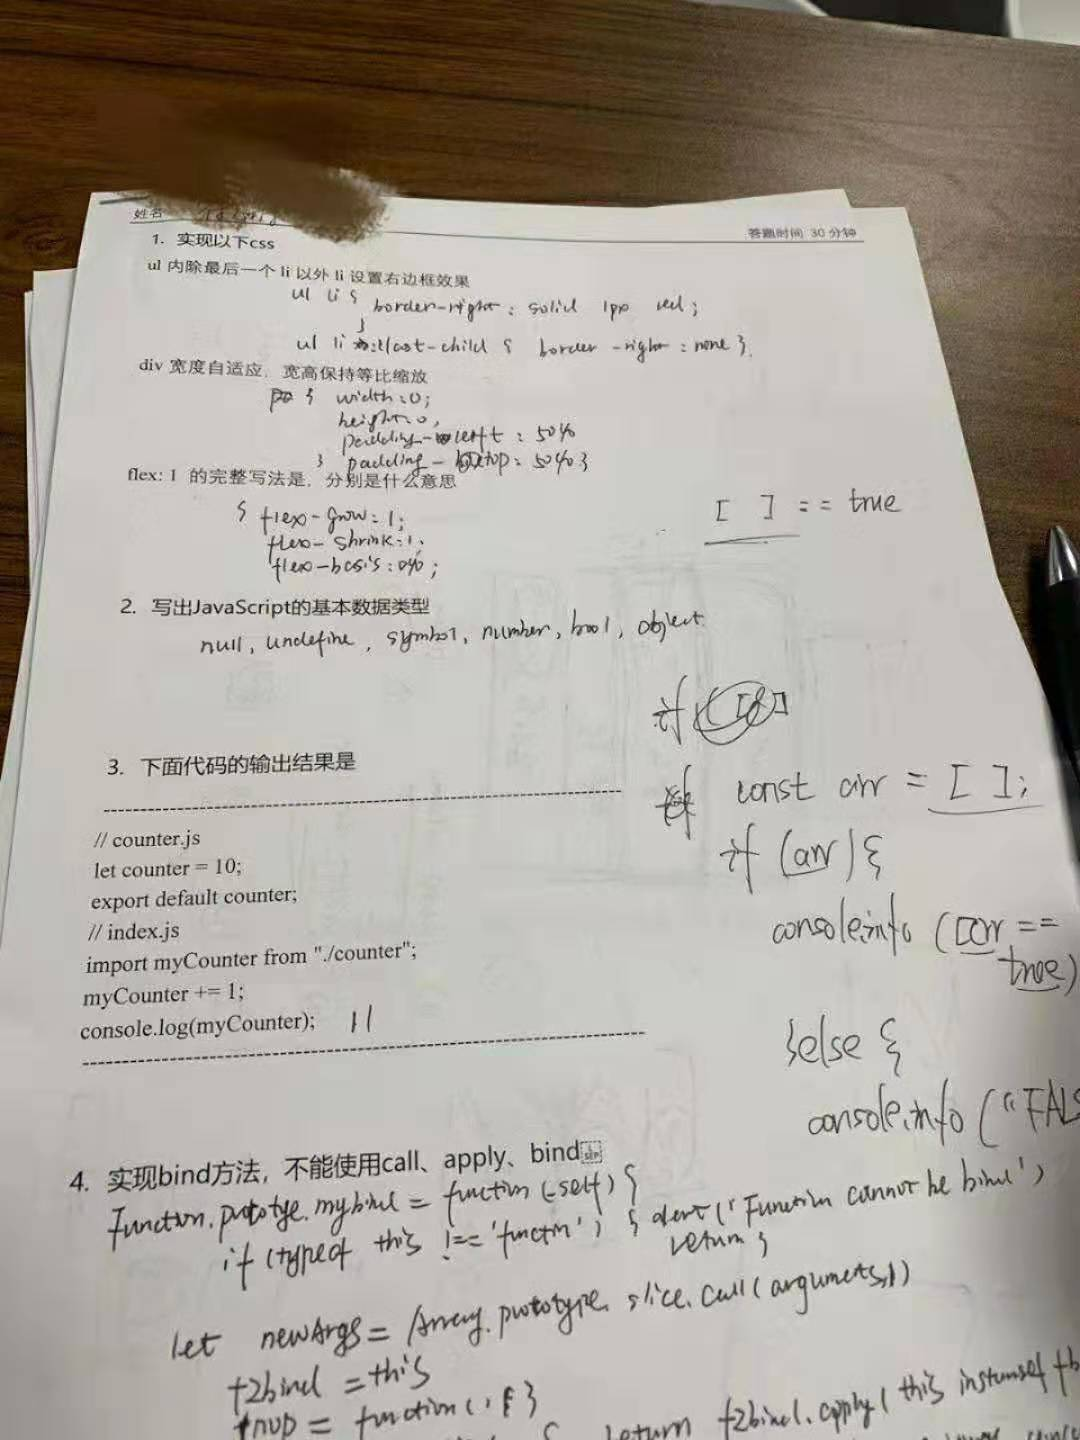 姓名
答题时间 30 分钟
1. 实现以下css
ul 内除最后一个 li 以外 li 设置右边框效果
ul li {
border-right: solid 1px red;
}
ul li :last-child { border-right: none }.
div 宽度自适应, 宽高保持等比缩放
{ width: 0;
height: 0,
padding-left: 50%
padding-top: 50% }
flex: 1 的完整写法是, 分别是什么意思
{ flex-grow: 1;
flex-shrink: 1;
flex-basis: 0%;
[ ] == true
2. 写出JavaScript的基本数据类型
null, undefine, symbol, number, bool, object.
if ( [ ]
3. 下面代码的输出结果是
const arr = [ ];
if (arr) {
console.info (arr ==
true)
} else {
console.info ("FALS
// counter.js
let counter = 10;
export default counter;
// index.js
import myCounter from "./counter";
myCounter += 1;
console.log(myCounter); 11
4. 实现bind方法, 不能使用call、apply、bind
Function.prototye.mybind = function (-self) {
if (typeof this !== 'functin') { alert('Function cannot be bind')
return }
let newArgs = Array.prototype.slice.call(arguments,1)
f2bind = this
fnop = function() { }
return f2bind.apply(this instanseof fb